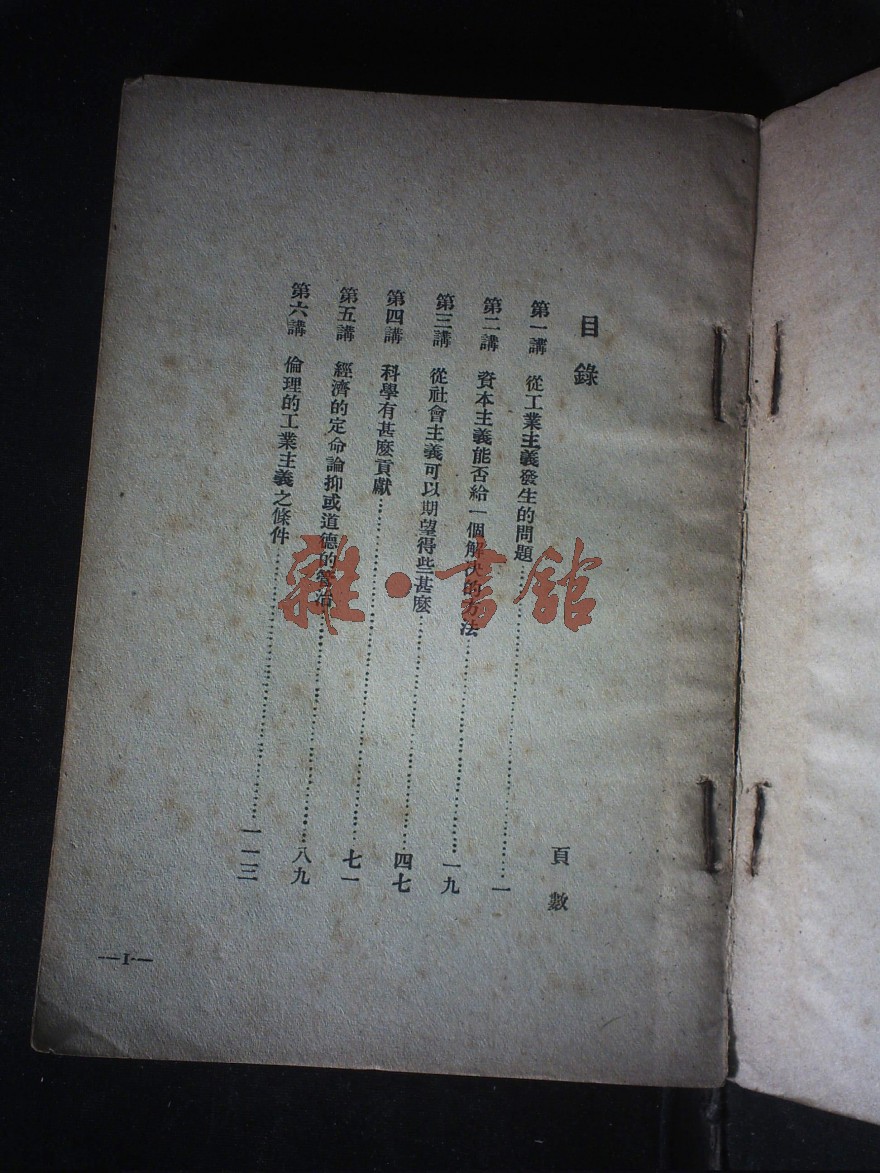 目錄
頁數
第一講 從工業主義發生的問題……一
第二講 資本主義能否給一個解決的方法……一九
第三講 從社會主義可以期望得些甚麼……四七
第四講 科學有甚麼貢獻……七一
第五講 經濟的定命論抑或道德的管治……八九
第六講 倫理的工業主義之條件……一一三
—I—
雜·書館